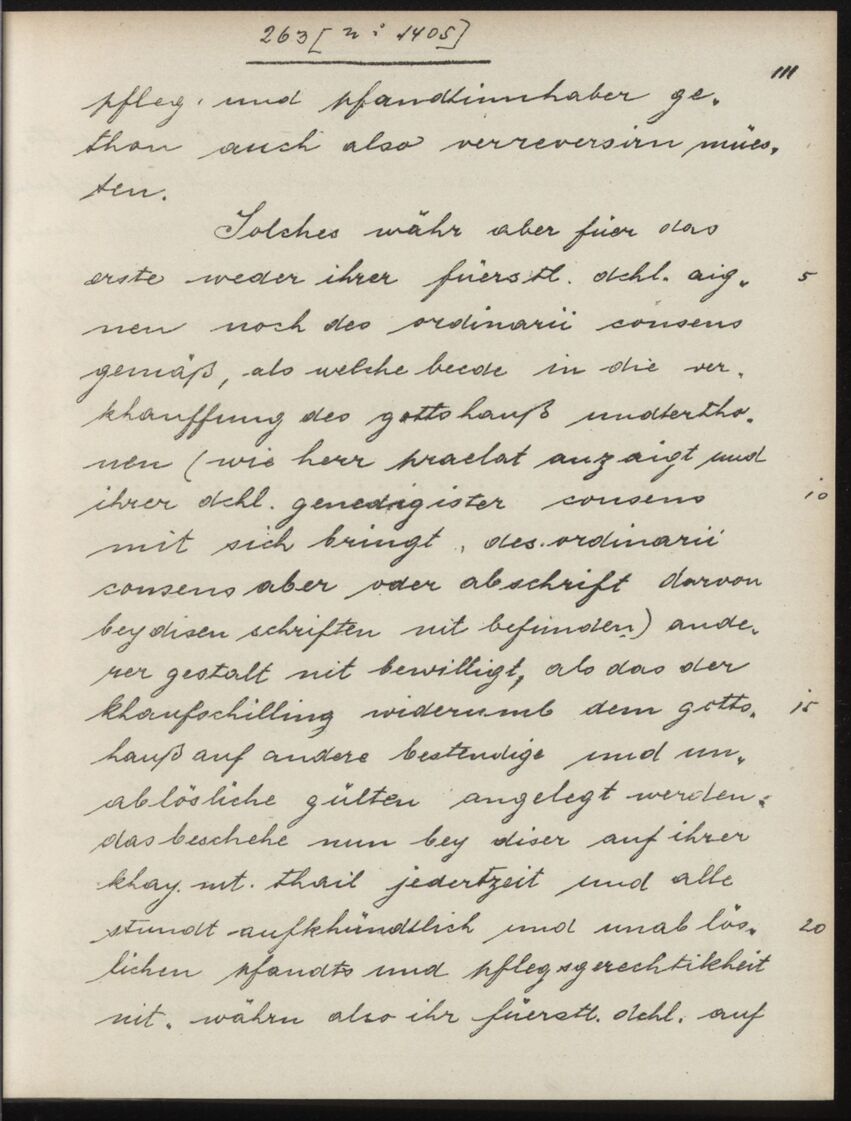 263 [n: 1405]
111
pfleg- und pfandtinnhaber ge-
thon auch also verreversirn mües-
ten.
Solches währ aber füer das
erste weder ihrer füerstl. dchl. aig- 5
nen noch des ordinarii consens
gemäß, als welche beede in die ver-
khauffung des gottshauß undtertho-
nen (wie herr praelat anzaigt und
ihrer dchl. genedigister consens 10
mit sich bringt, des ordinarii
consens aber oder abschrift darvon
bey disen schriften nit befünden) ande-
rer gestalt nit bewilligt, als das der
khaufschilling widerumb dem gotts- 15
hauß auf andere bestendige und un-
ablösliche gülten angelegt werden:
das beschehe nun bey diser auf ihrer
khay. mt. thail jedertzeit und alle
stundt aufkhündtlich und unablös- 20
lichen pfandts und pflegsgerechtikheit
nit. währn also ihr füerstl. dchl. auf